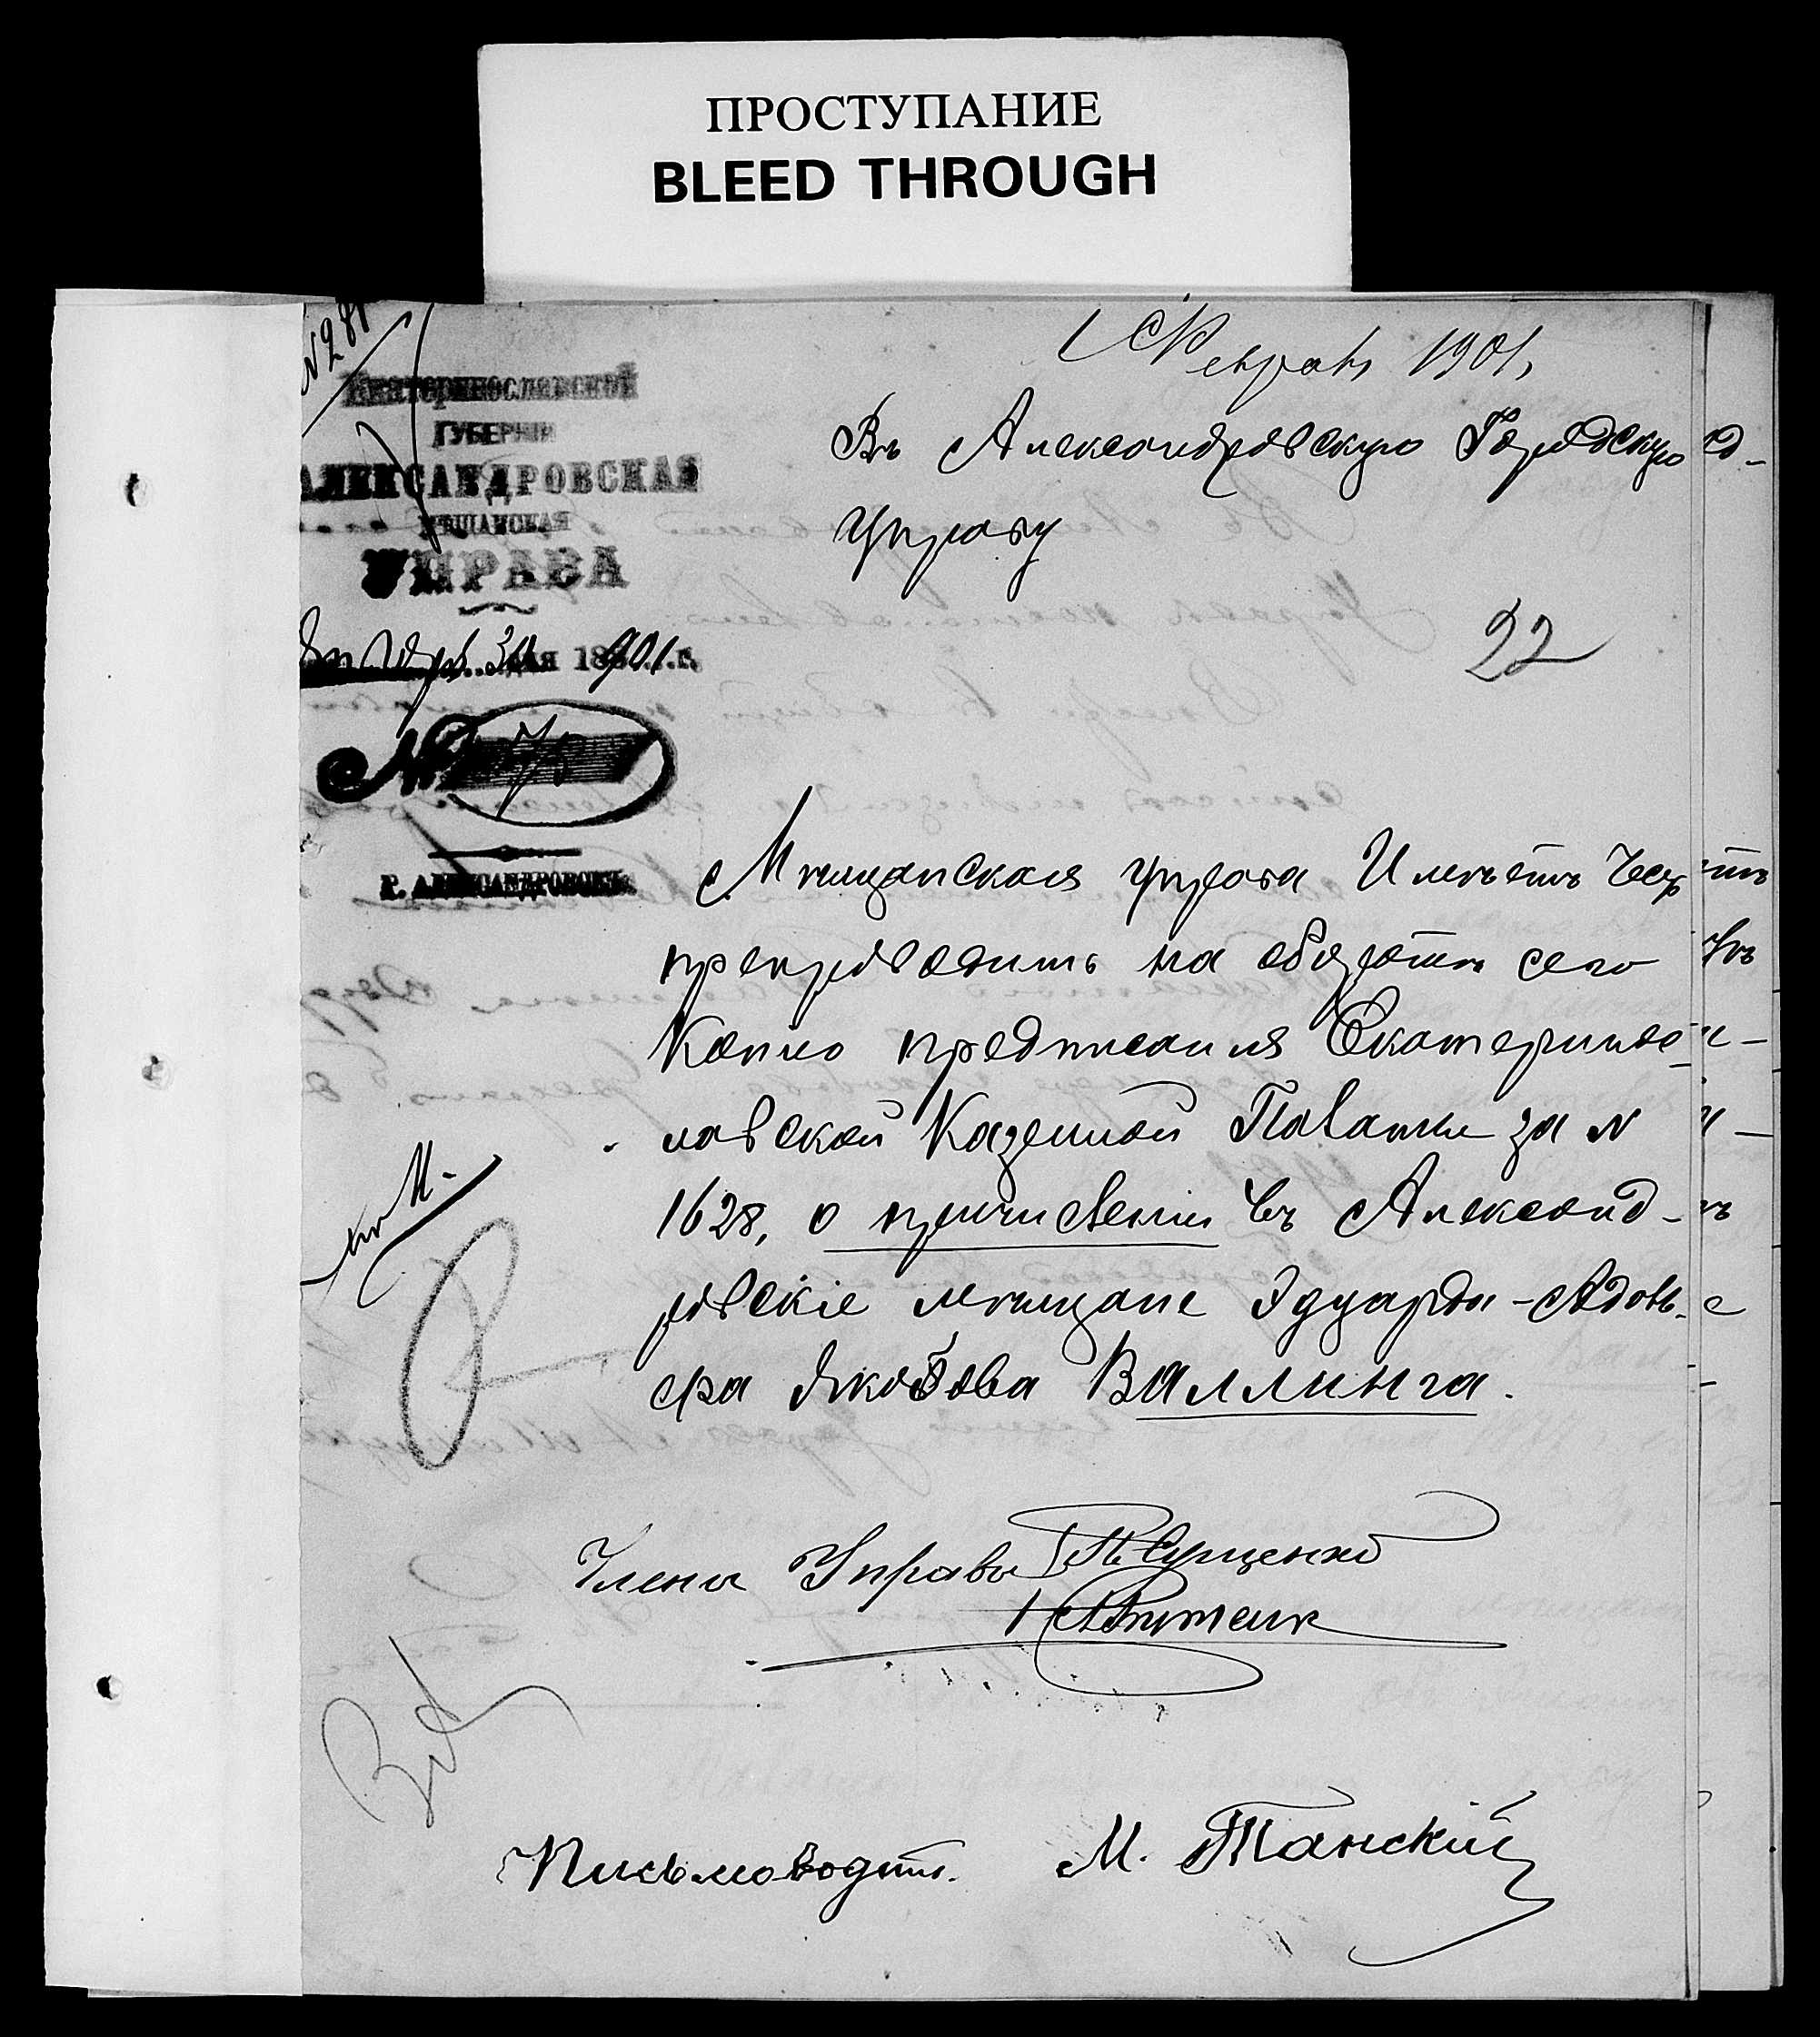 ПРОСТУПАНИЕ
BLEED THROUGH
N 281
1 Февраля 1901,
ЕКАТЕРИНОСЛАВСКОЙ
ГУБЕРНІИ
АЛЕКСАНДРОВСКАЯ
МѢЩАНСКАЯ
УПРАВА
Января 31 дня 1901 г.
№ 70
Г. АЛЕКСАНДРОВСКЪ.
Въ Александровскую Городскую
Управу
22
Мѣщанская управа Имѣетъ Честь
препроводить на оборотѣ сего
Копію предписанія Екатеринос
лавской Казенной Палаты за N
1628, о причисленіи въ Александ-
ровскіе мѣщане Эдуарда-Адоль-
фа Якобова Валлинга.
Члены Управы Сущенко
Письмоводит. М. Танскій